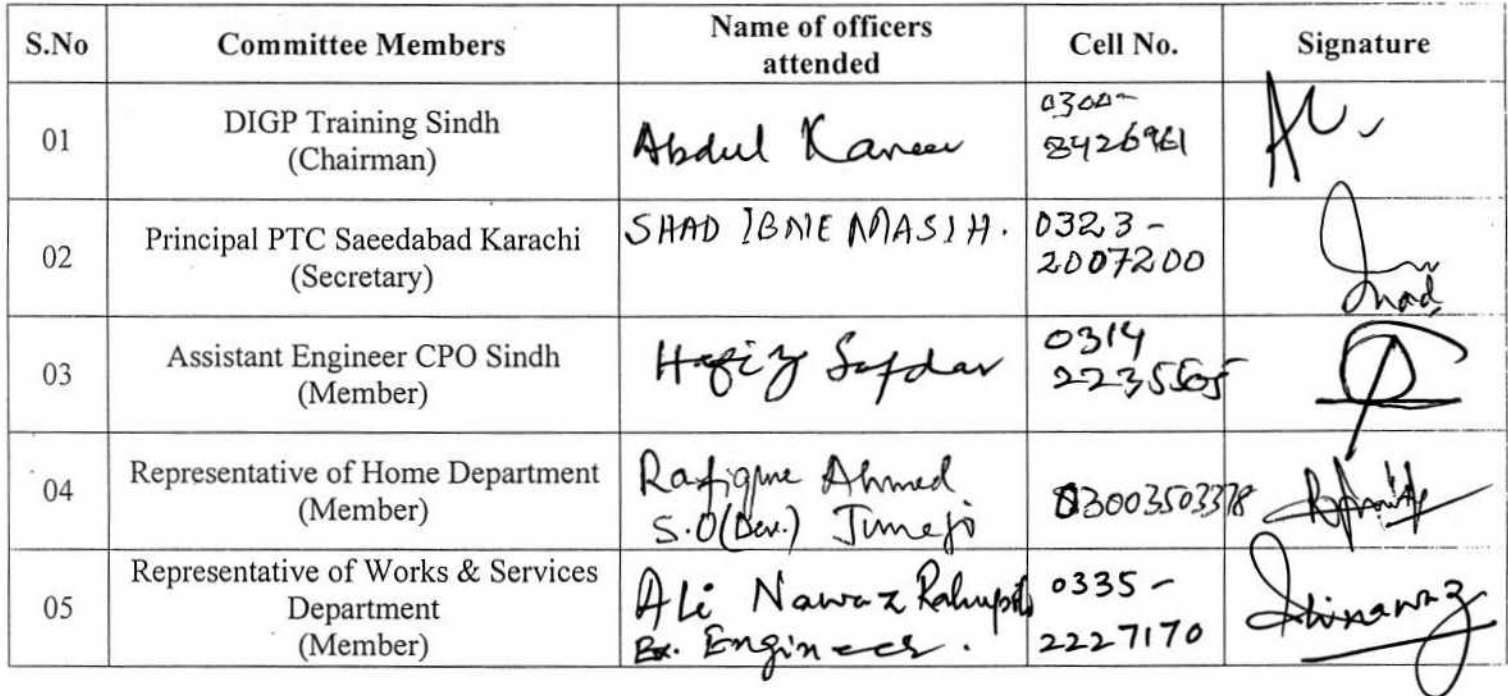 S.No Committee Members Name of officers attended Cell No. Signature
01 DIGP Training Sindh (Chairman) Abdul Kareem 0300- 8426961
02 Principal PTC Saeedabad Karachi (Secretary) SHAD IBNE MASIH. 0323- 2007200 Shad
03 Assistant Engineer CPO Sindh (Member) Hafiz Safdar 0314 2235565
04 Representative of Home Department (Member) Rafique Ahmed S.O(Dev.) Junejo 03003503378
05 Representative of Works & Services Department (Member) Ali Nawaz Ex. Engineer. 0335- 2227170 Alinawaz